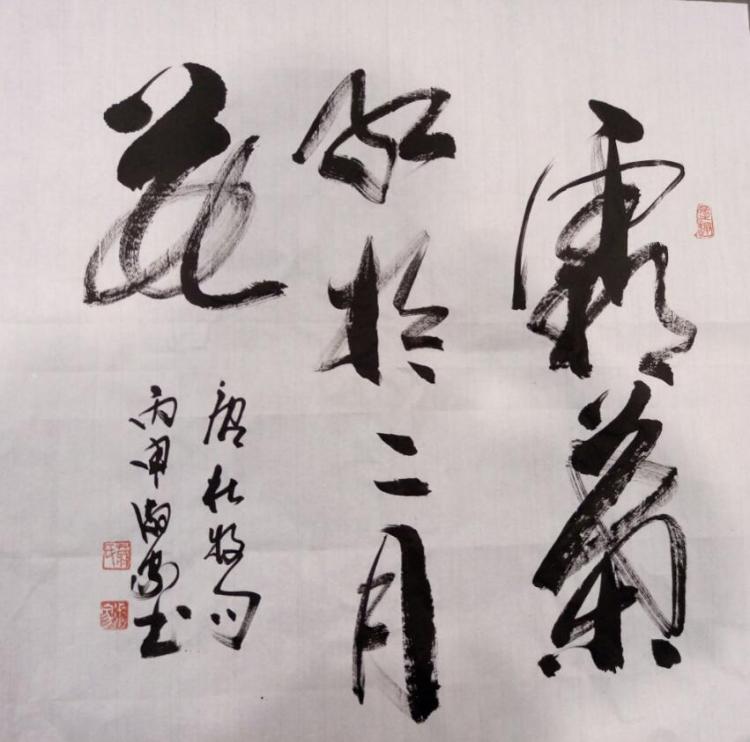 霜叶
红于二月
花
唐杜牧句
丙申
书